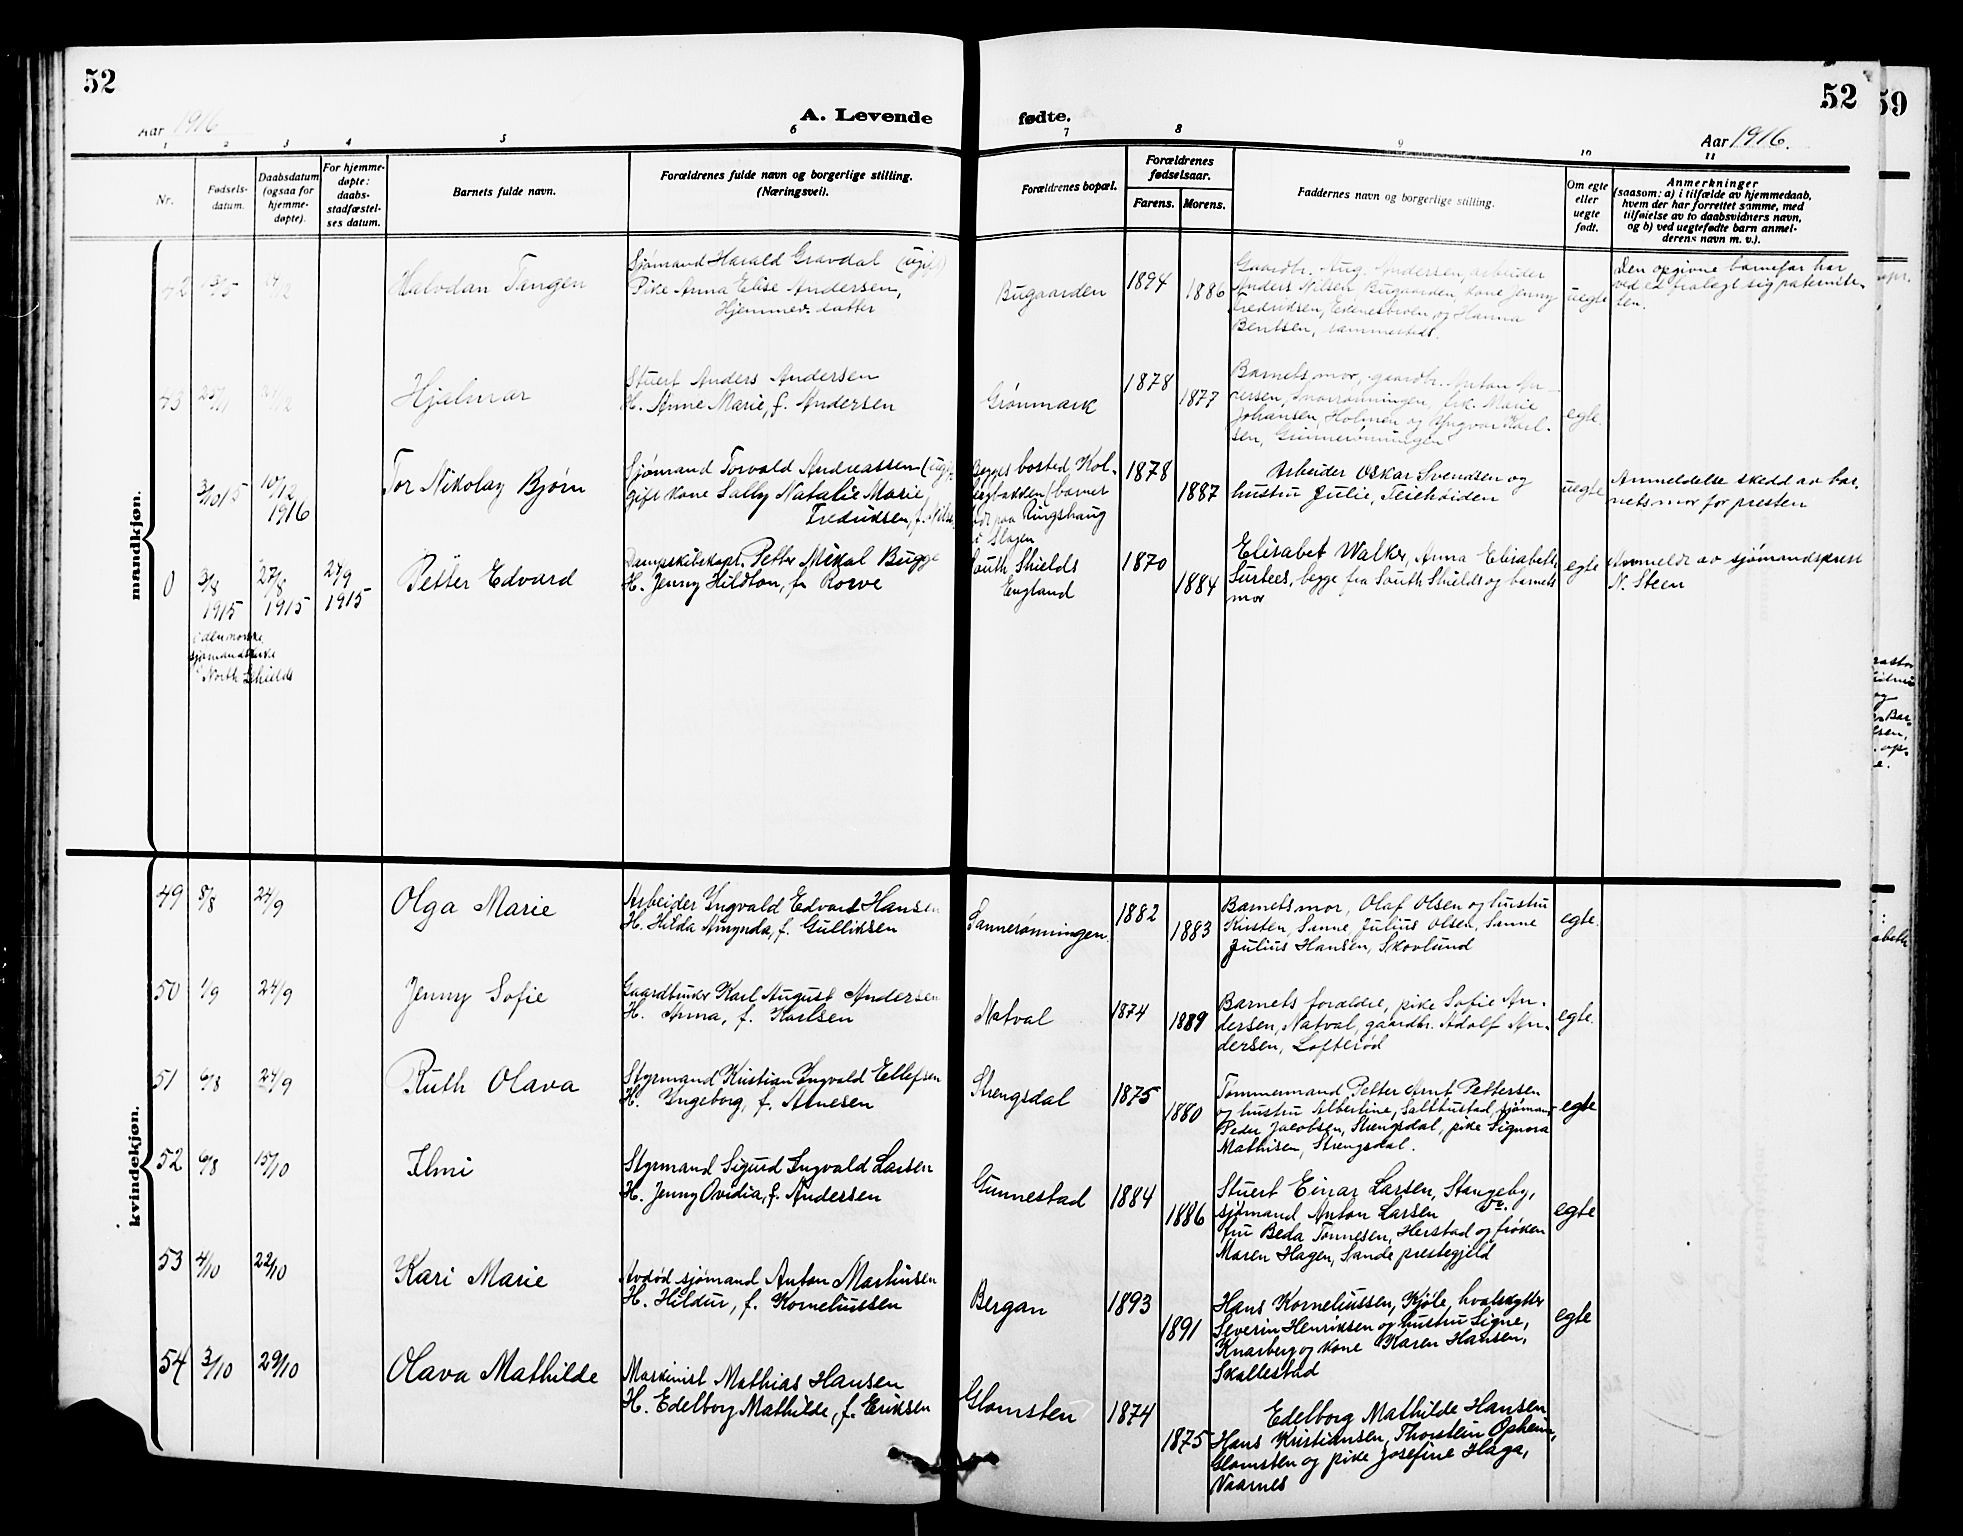 52
Aar 1916
A. Levende
fødte.
52
Aar 1916.
59
1
2
3
4
5
6
7
8
9
10
11
Nr.
Fødsels-
datum.
Daabsdatum
(ogsaa for
hjemme-
døpte).
For hjemme-
døpte:
daabs-
stadfæstel-
ses datum.
Barnets fulde navn.
Forældrenes fulde navn og borgerlige stilling.
(Næringsvei).
Forældrenes bopæl.
Forældrenes
fødselsaar.
Farens. Morens.
Faddernes navn og borgerlige stilling.
Om egte
eller
uegte
født.
Anmerkninger
(saasom: a) i tilfælde av hjemmedaab,
hvem der har forrettet samme, med
tilføielse av to daabsvidners navn,
og b) ved uegtefødte barn anmel-
derens navn m. v.).
mandkjøn.
Halvdan Tangen
Sjømand Harald Gravdal (ugift)
Pike Anna Elise Andersen,
Hjemmev. datter
Bugaarden
1894
1886
Gaardbr. Aug. Andersen, arbeider
Anders Nilsen Bugaarden, kone Jenny
Fredriksen, Ekenesbroen og Hanna
Bentsen, sammesteds.
uegte
Den opgivne barnefar har
ved ed fralagt sig paternite-
ten.
43 25/11
Hjalmar
Stuert Anders Andersen
H. Anne Marie, f. Andersen
Grønmark
1878
1877
Barnets mor, gaardbr. Anton An-
dersen, Snorrønningen, frk. Marie
Johansen, Holmen og Yngvar Karl-
sen, Gunnerønningen
egte.
3/10 15
10/12
1916
Tor Nikolay Bjørn
Sjømand Torvald Andreassen (ugift
gift kone Sally Natalie Marie
Fredriksen, f. Nilsen
Begges bosted Kol-
bergbakken (barnet
født paa Ringshaug
i Slagen
1878
1887
Arbeider Oskar Svendsen og
hustru Julie, Teiehøiden
uegte
Anmeldelse skedd av bar-
nets mor for presten
0
3/8
1915
27/8
1915
27/9
1915
i den norske
sjømandskirke
i North Schields
Petter Edvard
Dampskibskapt. Petter Mikal Bugge
H. Jenny Hildton, f. Rorve
South Shields
England
1870
1884
Elisabet Walker, Anna Elisabeth
Surtees, begge fra South Shields og barnets
mor
egte
Anmeldt av sjømandsprest
N. Steen
kvindekjøn.
49 8/8 24/9
Olga Marie
Arbeider Yngvald Edvart Hansen
H. Hilda Amynda, f. Gulliksen
Sannerønningen.
1882
1883
Barnets mor, Olaf Olsen og hustru
Kirsten, Sanne, Julius Olsen, Sanne
Julius Hansen, Skovlund
egte.
50 1/9 24/9
Jenny Sofie
Gaardbruker Karl August Andersen
H. Anna, f. Karlsen
Natval
1874
1889
Barnets forældre, pike Sofie An-
dersen, Natval, gaardbr. Adolf An-
dersen, Lofterød
egte.
51 6/8 24/9
Ruth Olava
Styrmand Kristian Yngvald Ellefsen
H. Yngeborg, f. Arnesen
Strengsdal
1875
1880
Tømmermand Petter Arnt Pettersen
og hustru Albertine, Salthustad, sjømand
Peder Jacobsen, Strengsdal, pike Signora
Mathisen, Strengsdal.
egte
52 6/8 15/10
Ilmi
Styrmand Sigurd Yngvald Larsen
H. Jenny Ovidia, f. Andersen
Gunnestad
1884
1886
Stuert Einar Larsen, Stangeby,
sjømand Anton Larsen
fru Beda Tønnesen, Herstad og frøken
Maren Hagen, Sande prestegjeld
egte
53 4/10 22/10
Kari Marie
Avdød sjømand Anton Martinsen
H. Hildur, f. Korneliussen
Bergan
1893
1891
Hans Korneliussen, Kjøle, hvalskytter
Severin Henriksen og hustru Signe,
Knarberg og kone Karen Hansen,
Skallestad
egte
54 3/10 29/10
Olava Mathilde
Maskinist Mathias Hansen
H. Edelborg Mathilde, f. Eriksen
Glomsten
1874
1875
Edelborg Mathilde Hansen
Hans Kristiansen, Thorstein Opheim,
Glomsten og pike Josefine Haga,
Vaarnes